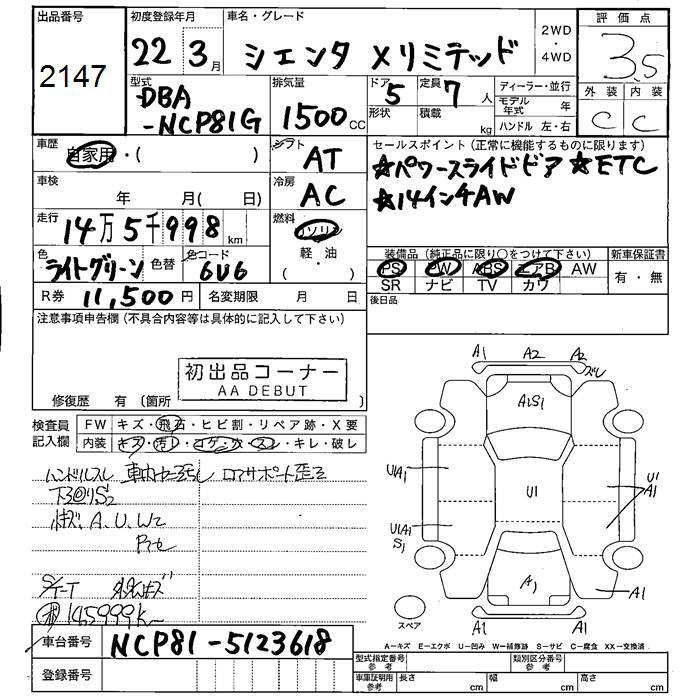 出品番号
2147
初度登録年月
22 3月
車名・グレード
シエンタ Xリミテッド
2WD
・
4WD
評価点
3.5
外装 内装
C C
型式
DBA
-NCP81G
排気量
1500CC
ドア 5
形状
定員 7人
積載 kg
ディーラー・並行
モデル年式 年
ハンドル 左・右
車歴
自家用・( )
シフト
AT
セールスポイント(正常に機能するものに限ります)
☆パワースライドドア ☆ETC
☆14インチAW
車検
年 月( 日)
冷房
AC
走行
14万5千998km
燃料
ガソリン
軽・油
( )
色
ライトグリーン
色替
色コード
6U6
装備品(純正品に限り○をつけて下さい)
PS PW ABS エアB AW
SR ナビ TV カワ
新車保証書
有・無
R券 11,500円
名変期限 月 日
後日品
注意事項申告欄(不具合内容等は具体的に記入して下さい)
初出品コーナー
AA DEBUT
修復歴 有(箇所 )
検査員
記入欄
FW キズ・飛石・ヒビ割・リペア跡・X要
内装 キズ・汚レ・コゲ・穴・スレ・キレ・破レ
ハンドルスレ
ロアサポート歪ミ
A、U、W2
145999K
A1 A2 A2
A1S1
UA1
U1
U1
A1
U1A1
S1
A1
A1
A1 A1
スペア
A-キズ E-エクボ U-凹み W-補修跡 S-サビ C-腐食 XX-交換済
車台番号
NCP81-5123618
登録番号
型式指定番号
参考
類別区分番号
参考
車庫証明用
参考
長さ cm
幅 cm
高さ cm